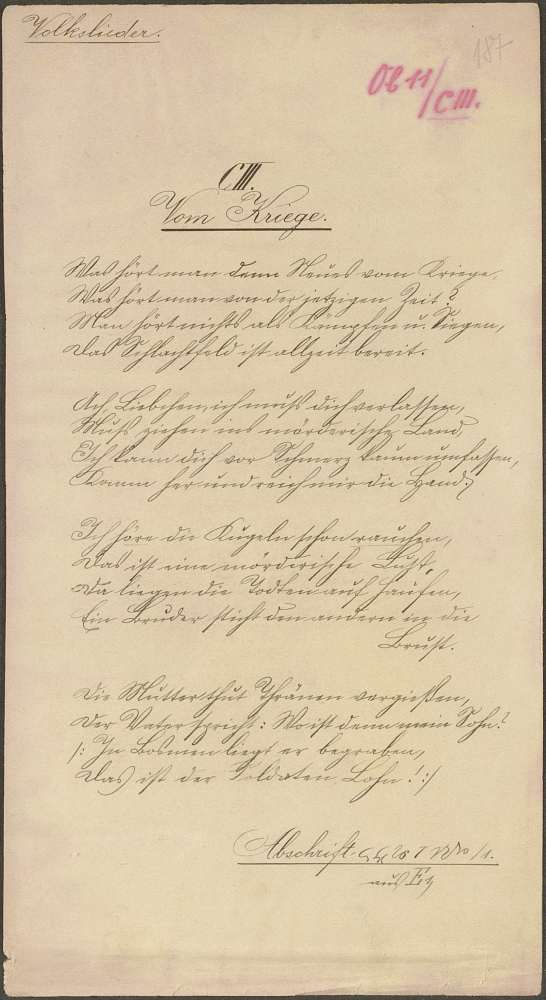 Volkslieder.
187
Ob 11/CIII.
CIII.
Vom Kriege.
Was hört man denn Neues vom Kriege,
Was hört man von der jetzigen Zeit?
Man hört nichts als Kämpfen u. Siegen,
Das Schlachtfeld ist allzeit bereit.
Ach, Liebchen, ich muß dich verlassen,
Muß ziehen ins mörderische Land,
Ich kann dich vor Schmerz kaum umfassen,
Komm her und reich mir die Hand.
Ich höre die Kugeln schon rauschen,
Das ist eine mörderische Lust,
Da liegen die Todten auf Haufen,
Ein Bruder sticht den andern in die
Brust.
Die Mutter thut Thränen vergießen,
Der Vater spricht: Wo ist denn mein Sohn?
/: In Bosnien liegt er begraben,
Das ist der Soldaten Lohn! :/
Abschrift
aus